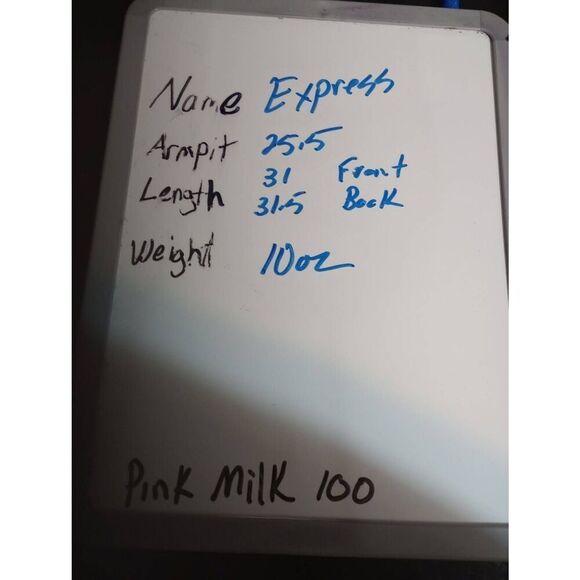 Name Express
Armpit 25.5
Length 31 Front
31.5 Back
Weight 10oz
Pink Milk 100